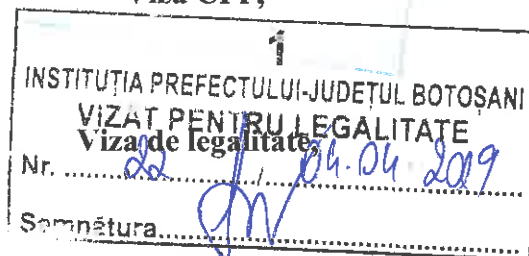 Viza CFP,
1
INSTITUȚIA PREFECTULUI-JUDEȚUL BOTOȘANI
VIZAT PENTRU LEGALITATE
Viza de legalitate,
Nr. ...... 22 ...../.. 04.04 2019
Semnătura.....